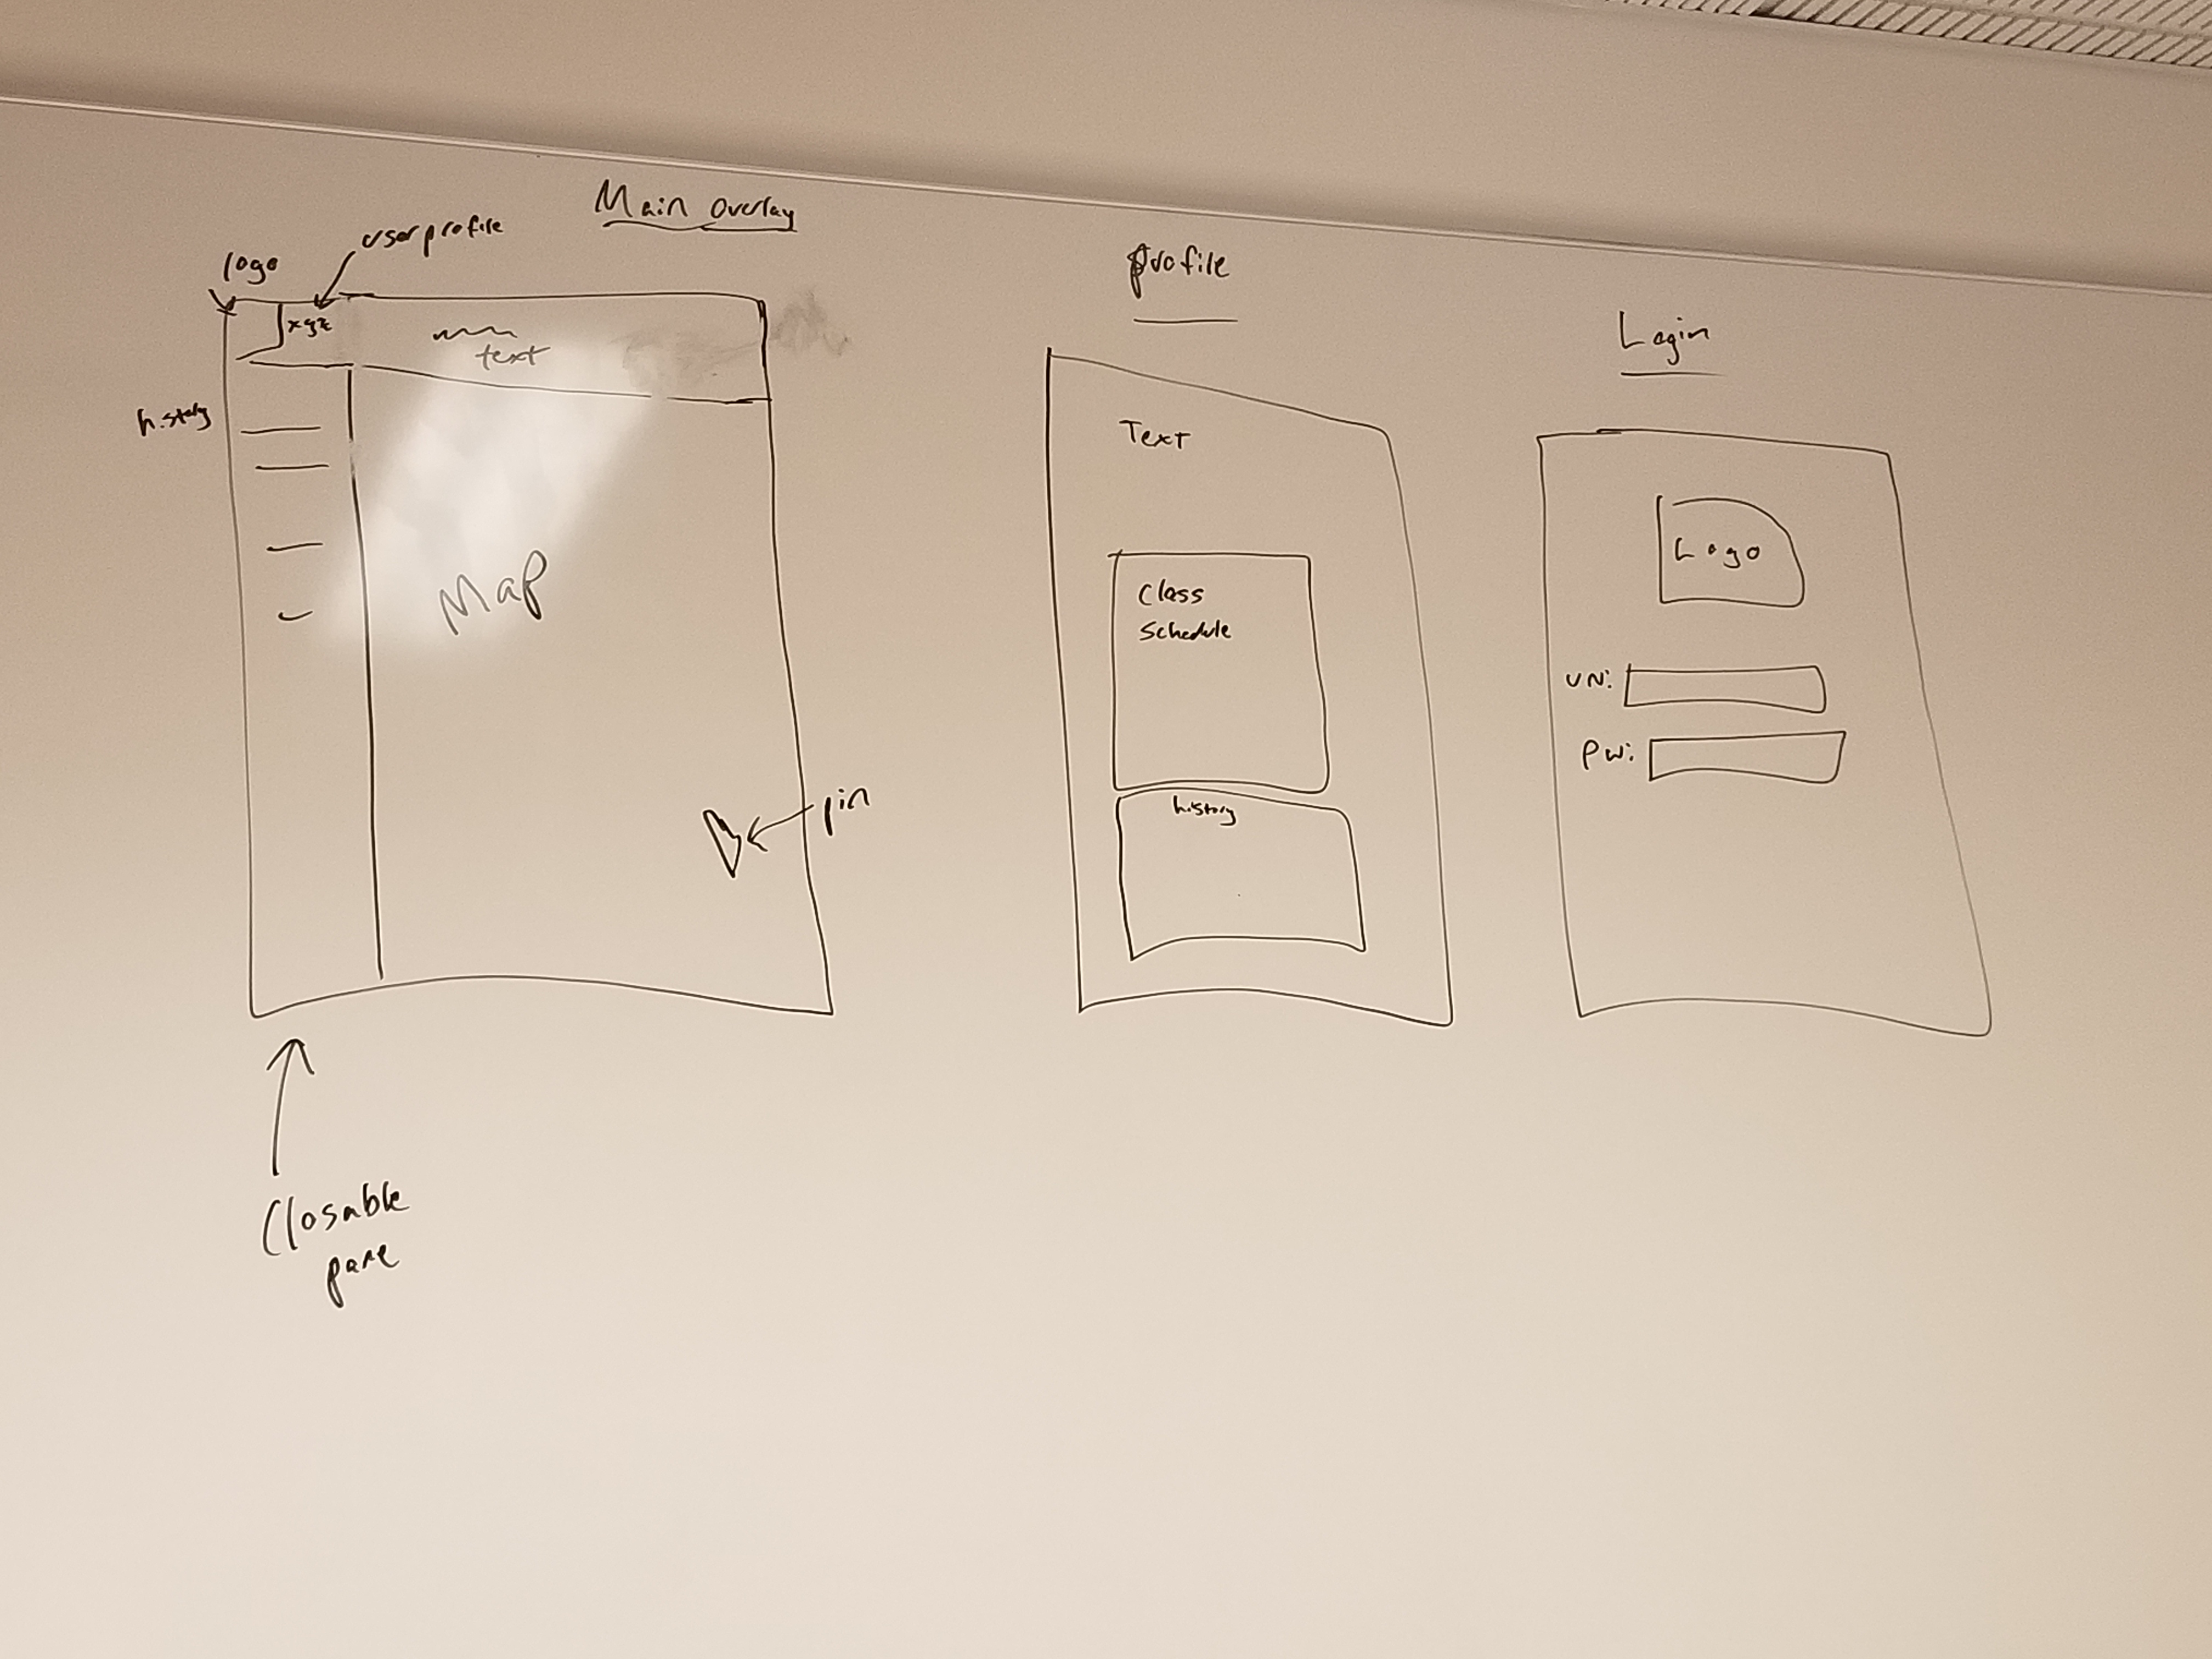 Main overlay
user profile
logo
xyz
text
history
Map
pin
Closable
pane
profile
Text
Class
Schedule
history
Login
Logo
UN:
PW: